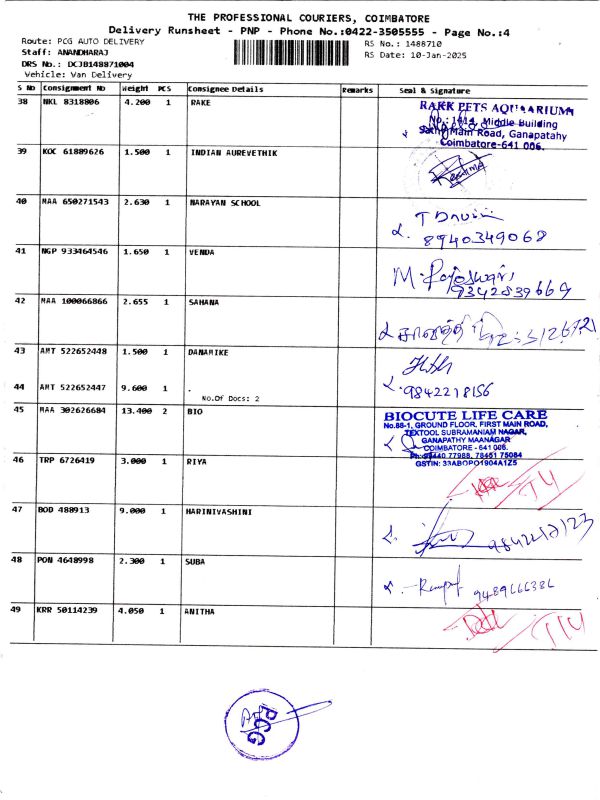 THE PROFESSIONAL COURIERS, COIMBATORE
Delivery Runsheet - PNP - Phone No.:0422-3505555 - Page No.:4
Route: PCG AUTO DELIVERY
Staff: ANANDHARAJ
DRS No.: DCJB148871004
Vehicle: Van Delivery
RS No.: 1488710
RS Date: 10-Jan-2025
S No Consignment No Weight PCS Consignee Details Remarks Seal & Signature
38 NKL 8318806 4.200 1 RAKE
RAKK PETS AQUAARIUM
No.: 1414, Middle Building
Sathy Main Road, Ganapathy
Coimbatore-641 006.
39 KOC 61889626 1.500 1 INDIAN AUREVETHIK
40 MAA 650271543 2.630 1 NARAYAN SCHOOL
8940349068
41 NGP 933464546 1.650 1 VENDA
M. Rajeswari
9342839669
42 MAA 100066866 2.655 1 SAHANA
43 AMT 522652448 1.500 1 DANAMIKE
44 AMT 522652447 9.600 1 .
No.Of Docs: 2
9842218156
45 MAA 302626684 13.400 2 BIO
BIOCUTE LIFE CARE
No.88-1, GROUND FLOOR, FIRST MAIN ROAD,
TEXTOOL SUBRAMANIAM NAGAR,
GANAPATHY MAANAGAR
COIMBATORE - 641 006.
Ph: 94440 77988, 78451 75084
GSTIN: 33ABOPO1904A1Z5
46 TRP 6726419 3.000 1 RIYA
47 BOD 488913 9.000 1 HARINIVASHINI
48 PON 4648998 2.300 1 SUBA
9489666386
49 KRR 50114239 4.050 1 ANITHA
PCG